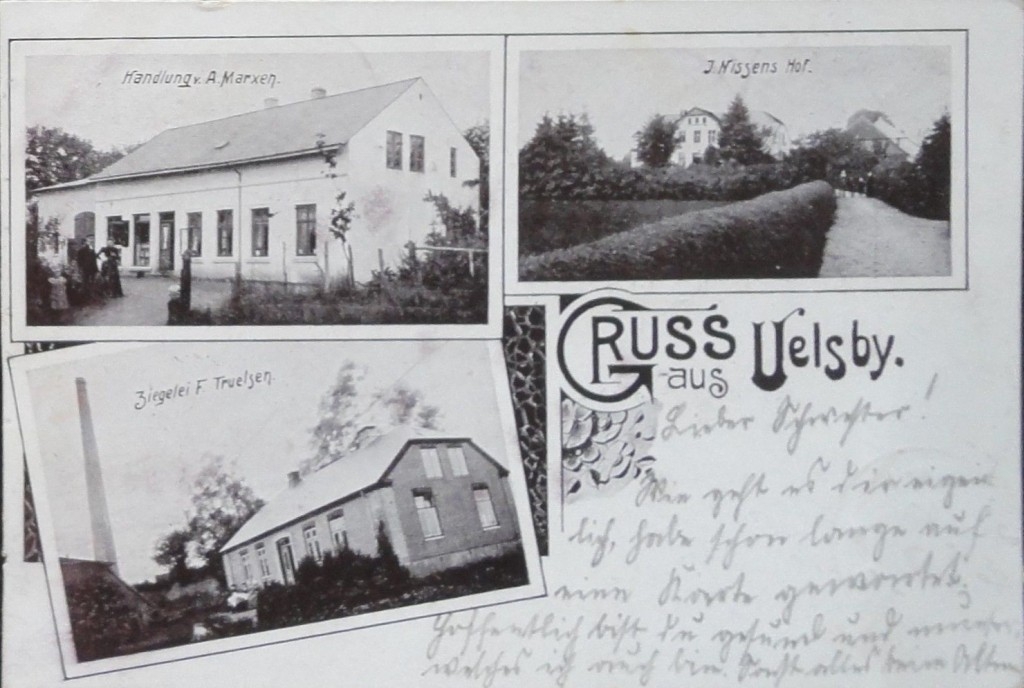 Handlung v. A. Marxen.
J. Nissens Hof.
Ziegelei F. Truelsen.
GRUSS
aus
Uelsby.
Lieber Schwester!
Wie geht es dir eigen
lich, habe schon lange auf
eine Karte gewartet.
Hoffentlich bist du gesund und
welches ich auch bin. Sonst alles beim Alten